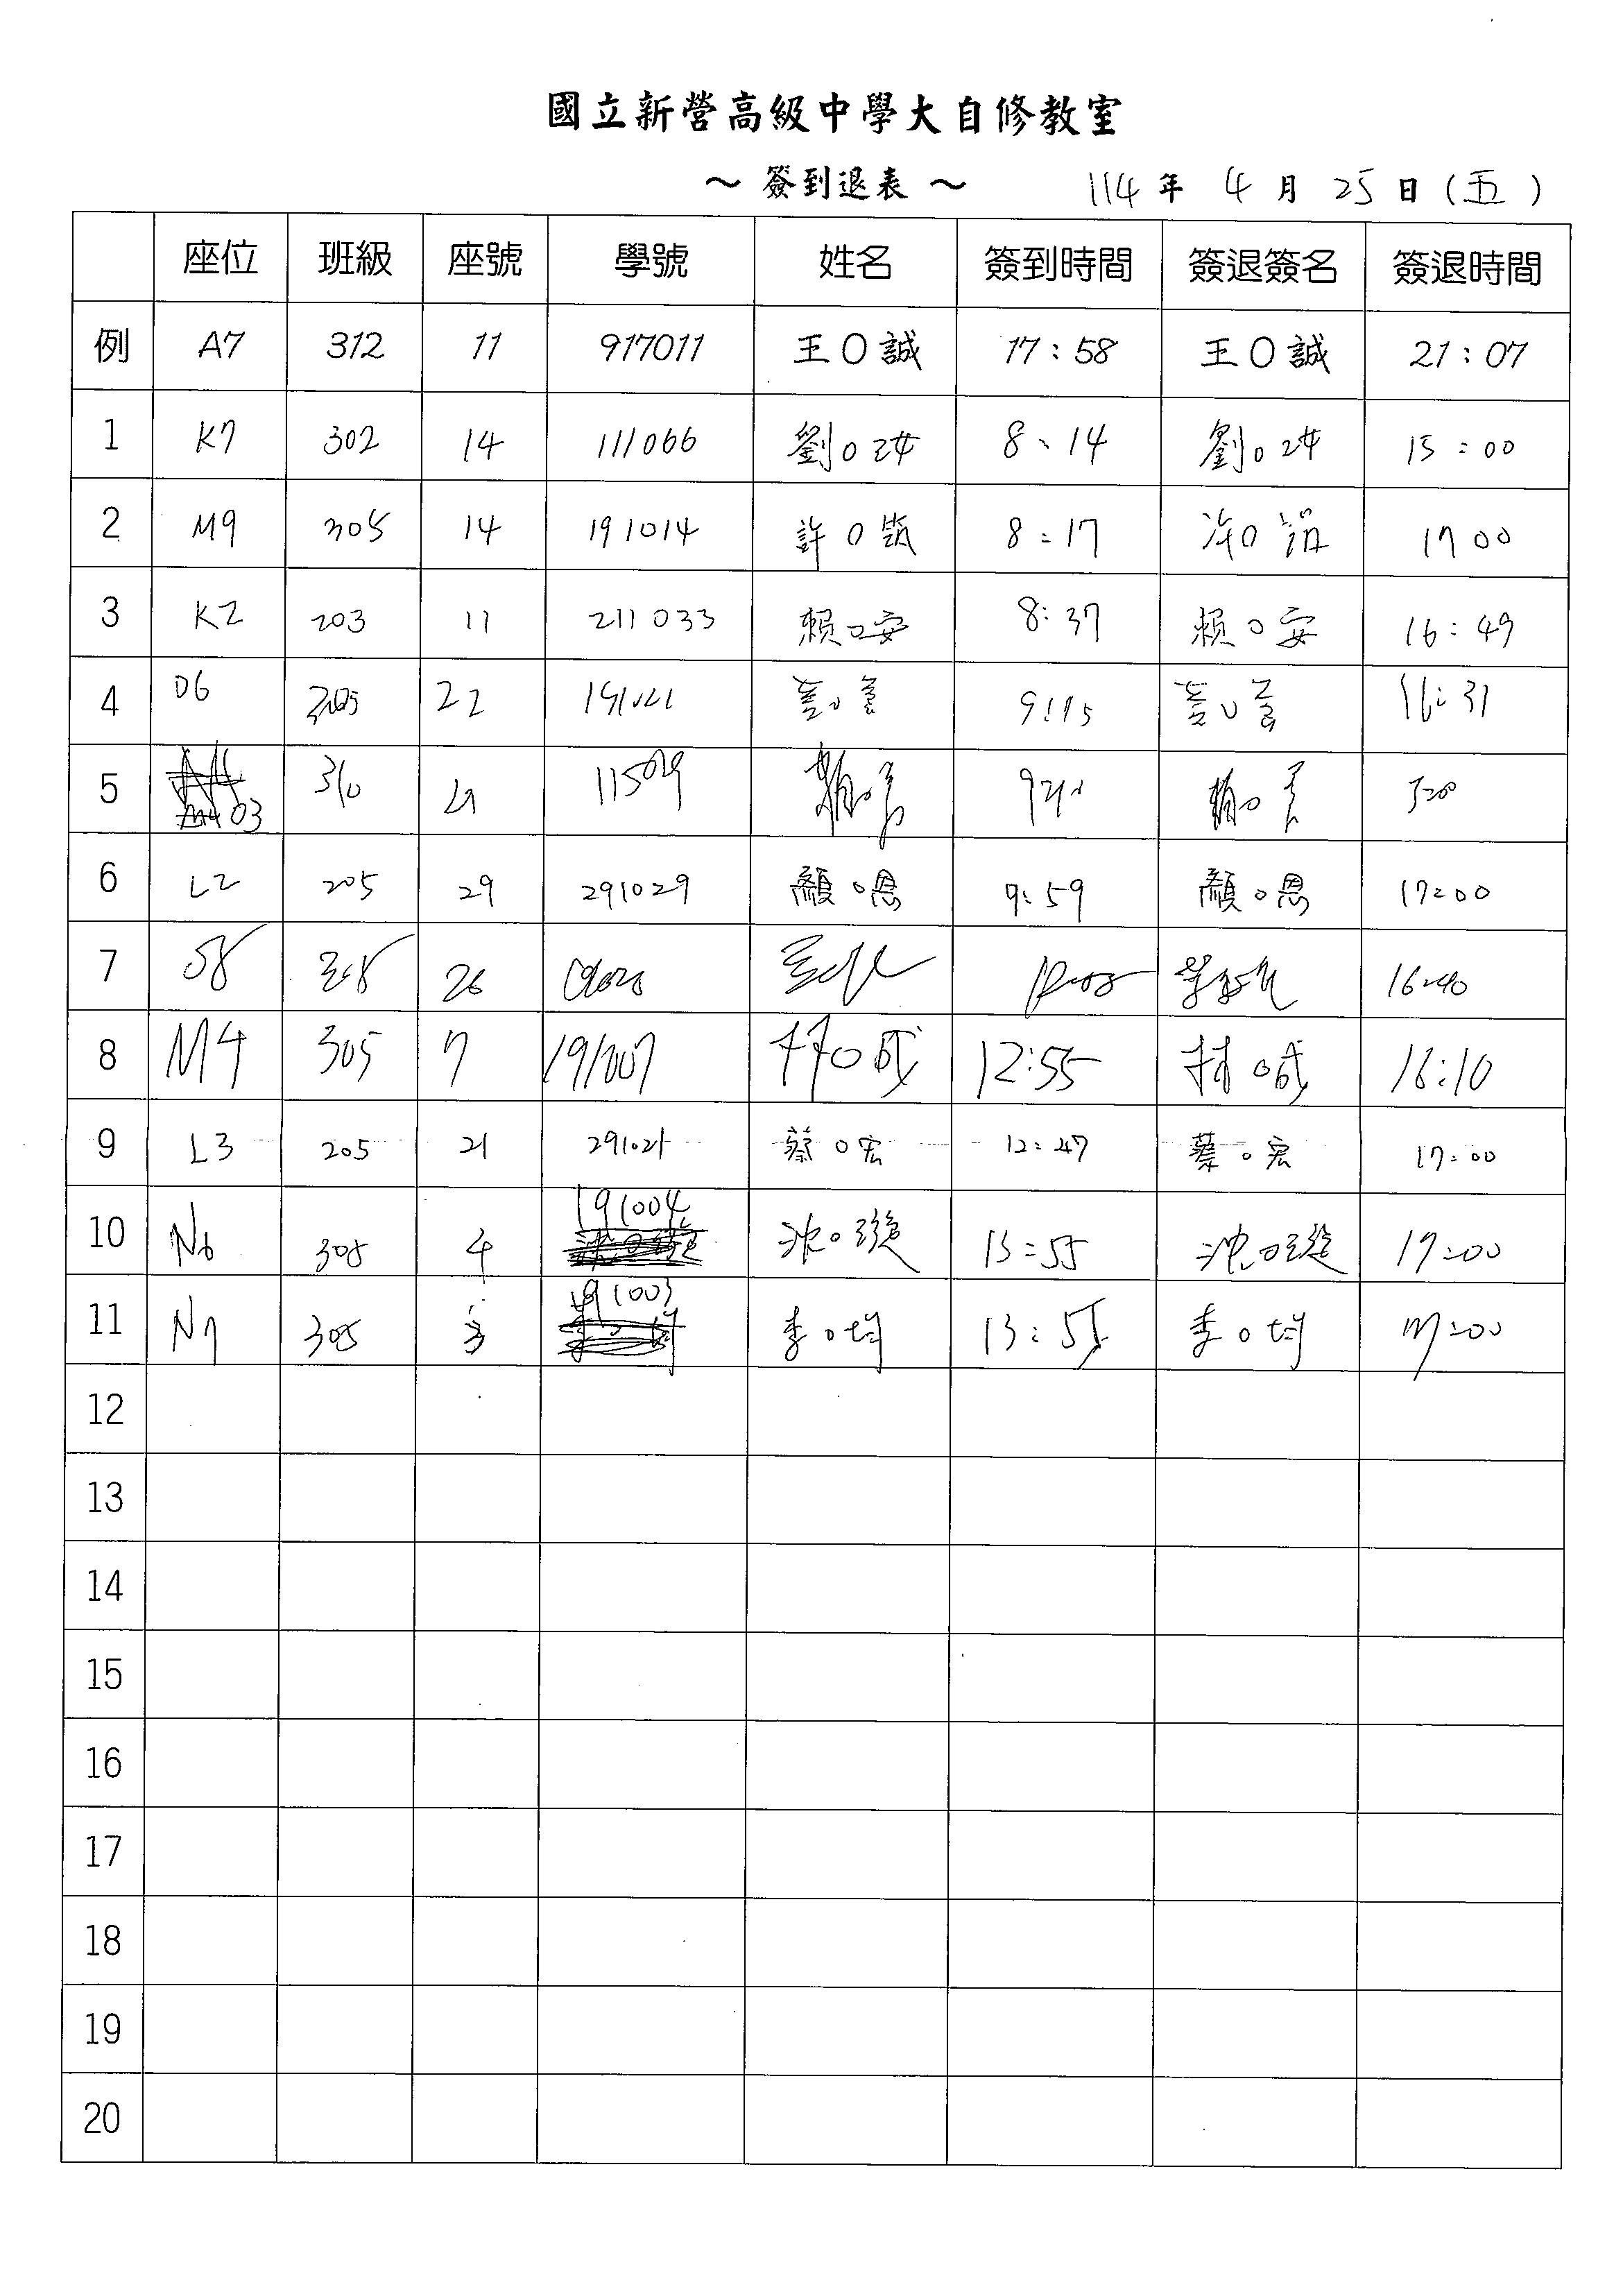 國立新營高級中學大自修教室
～ 簽到退表 ～ 114 年 4 月 25 日 (五)
座位 班級 座號 學號 姓名 簽到時間 簽退簽名 簽退時間
例 A7 312 11 917011 王O誠 17:58 王O誠 21:07
1 K7 302 14 111066 劉O 8:14 劉O 15:00
2 M9 305 14 191014 許O筑 8:17 許O 17 00
3 K2 203 11 211033 賴O安 8:37 賴O安 16:49
4 D6 22 9:15 16:31
5 03 310 115029
6 L2 205 29 291029 顏O恩 9:59 顏O恩 17:00
7 26 16:40
8 M4 305 7 191007 林O成 12:55 林O成 16:10
9 L3 205 21 291021 蔡O宏 12:47 蔡O宏 17:00
10 N6 305 4 191004 沈O璇 13:55 沈O璇 17:00
11 N7 305 3 191003 李O均 13:55 李O均 17:00
12
13
14
15
16
17
18
19
20